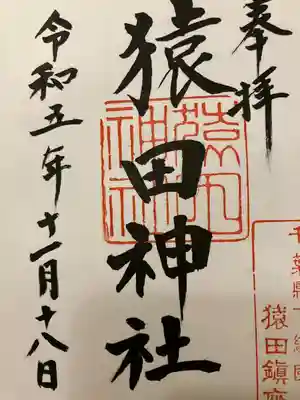 奉拝
猿田神社
令和五年十一月十八日
猿田
神社
千葉縣下総國
猿田鎮座